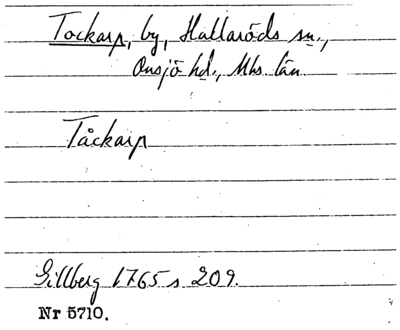 Tockarp, by, Hallaröds sn.,
Onsjö hd., Mhs. län
Tåckarp
Gillberg 1765 s 209.
Nr 5710.